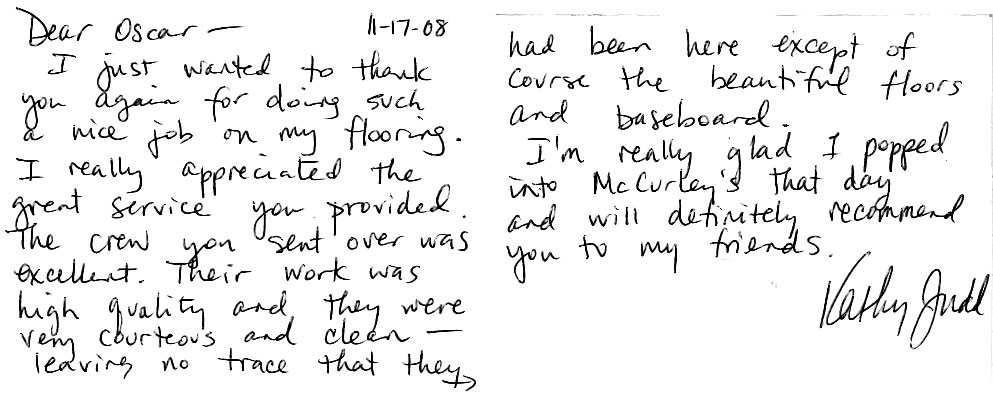 Dear Oscar — 11-17-08
I just wanted to thank
you again for doing such
a nice job on my flooring.
I really appreciated the
great service you provided.
The crew you sent over was
excellent. Their work was
high quality and they were
very courteous and clean —
leaving no trace that they →
had been here except of
course the beautiful floors
and baseboard.
I'm really glad I popped
into McCurley's that day
and will definitely recommend
you to my friends.
Kathy Judd